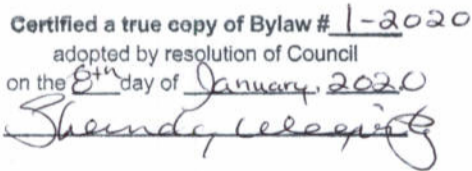 Certified a true copy of Bylaw # 1-2020
adopted by resolution of Council
on the 8th day of January, 2020